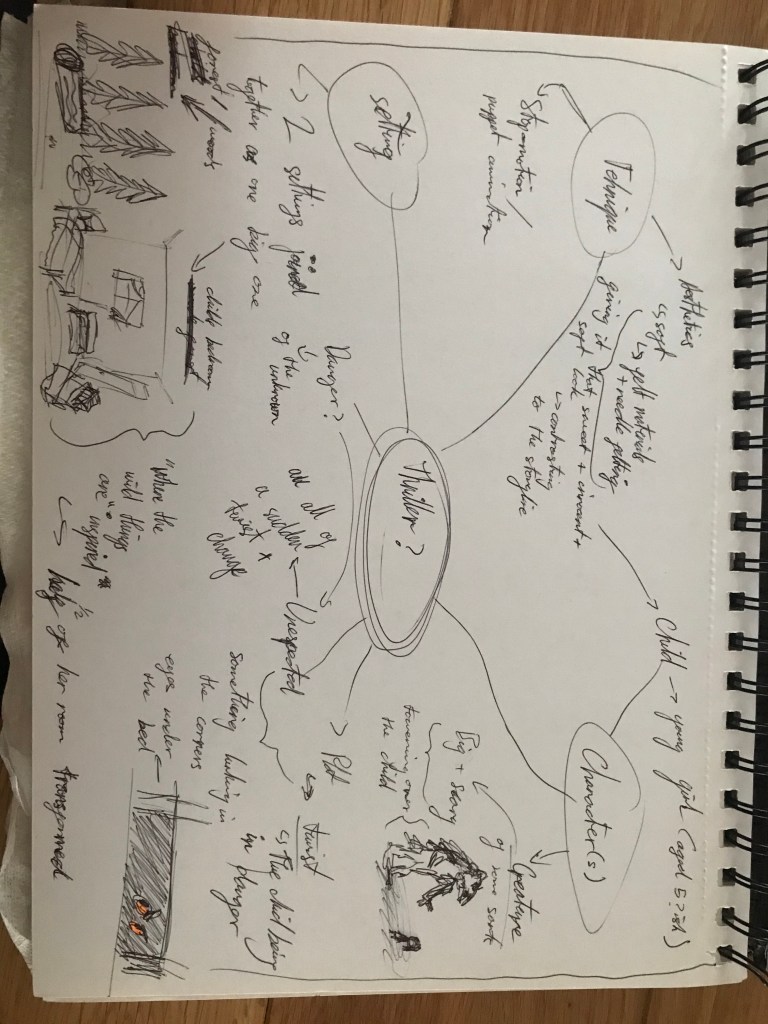 Tehnique
-> Aesthetics
↳ soft
↳ felt materials
+ needle felting
giving it that sweet + innocent +
soft look
↳ contrasting
to the storyline
Stop-motion /
puppet animation
Character(s)
Child -> young girl (aged 5?ish)
Creature
of some sort
Big + scary
towering over
the child
Thriller?
setting
-> 2 settings joined
together as one big one
forest /
woods
child bedroom
"Where the
wild things
are" inspired
-> 1/2 of her room transformed
Danger?
↳ of the
unknown
Unexpected
all of
a sudden
twist x
change
something lurking in
the corners
eyes under
the bed
Plot
-> twist
↳ the child being
in danger